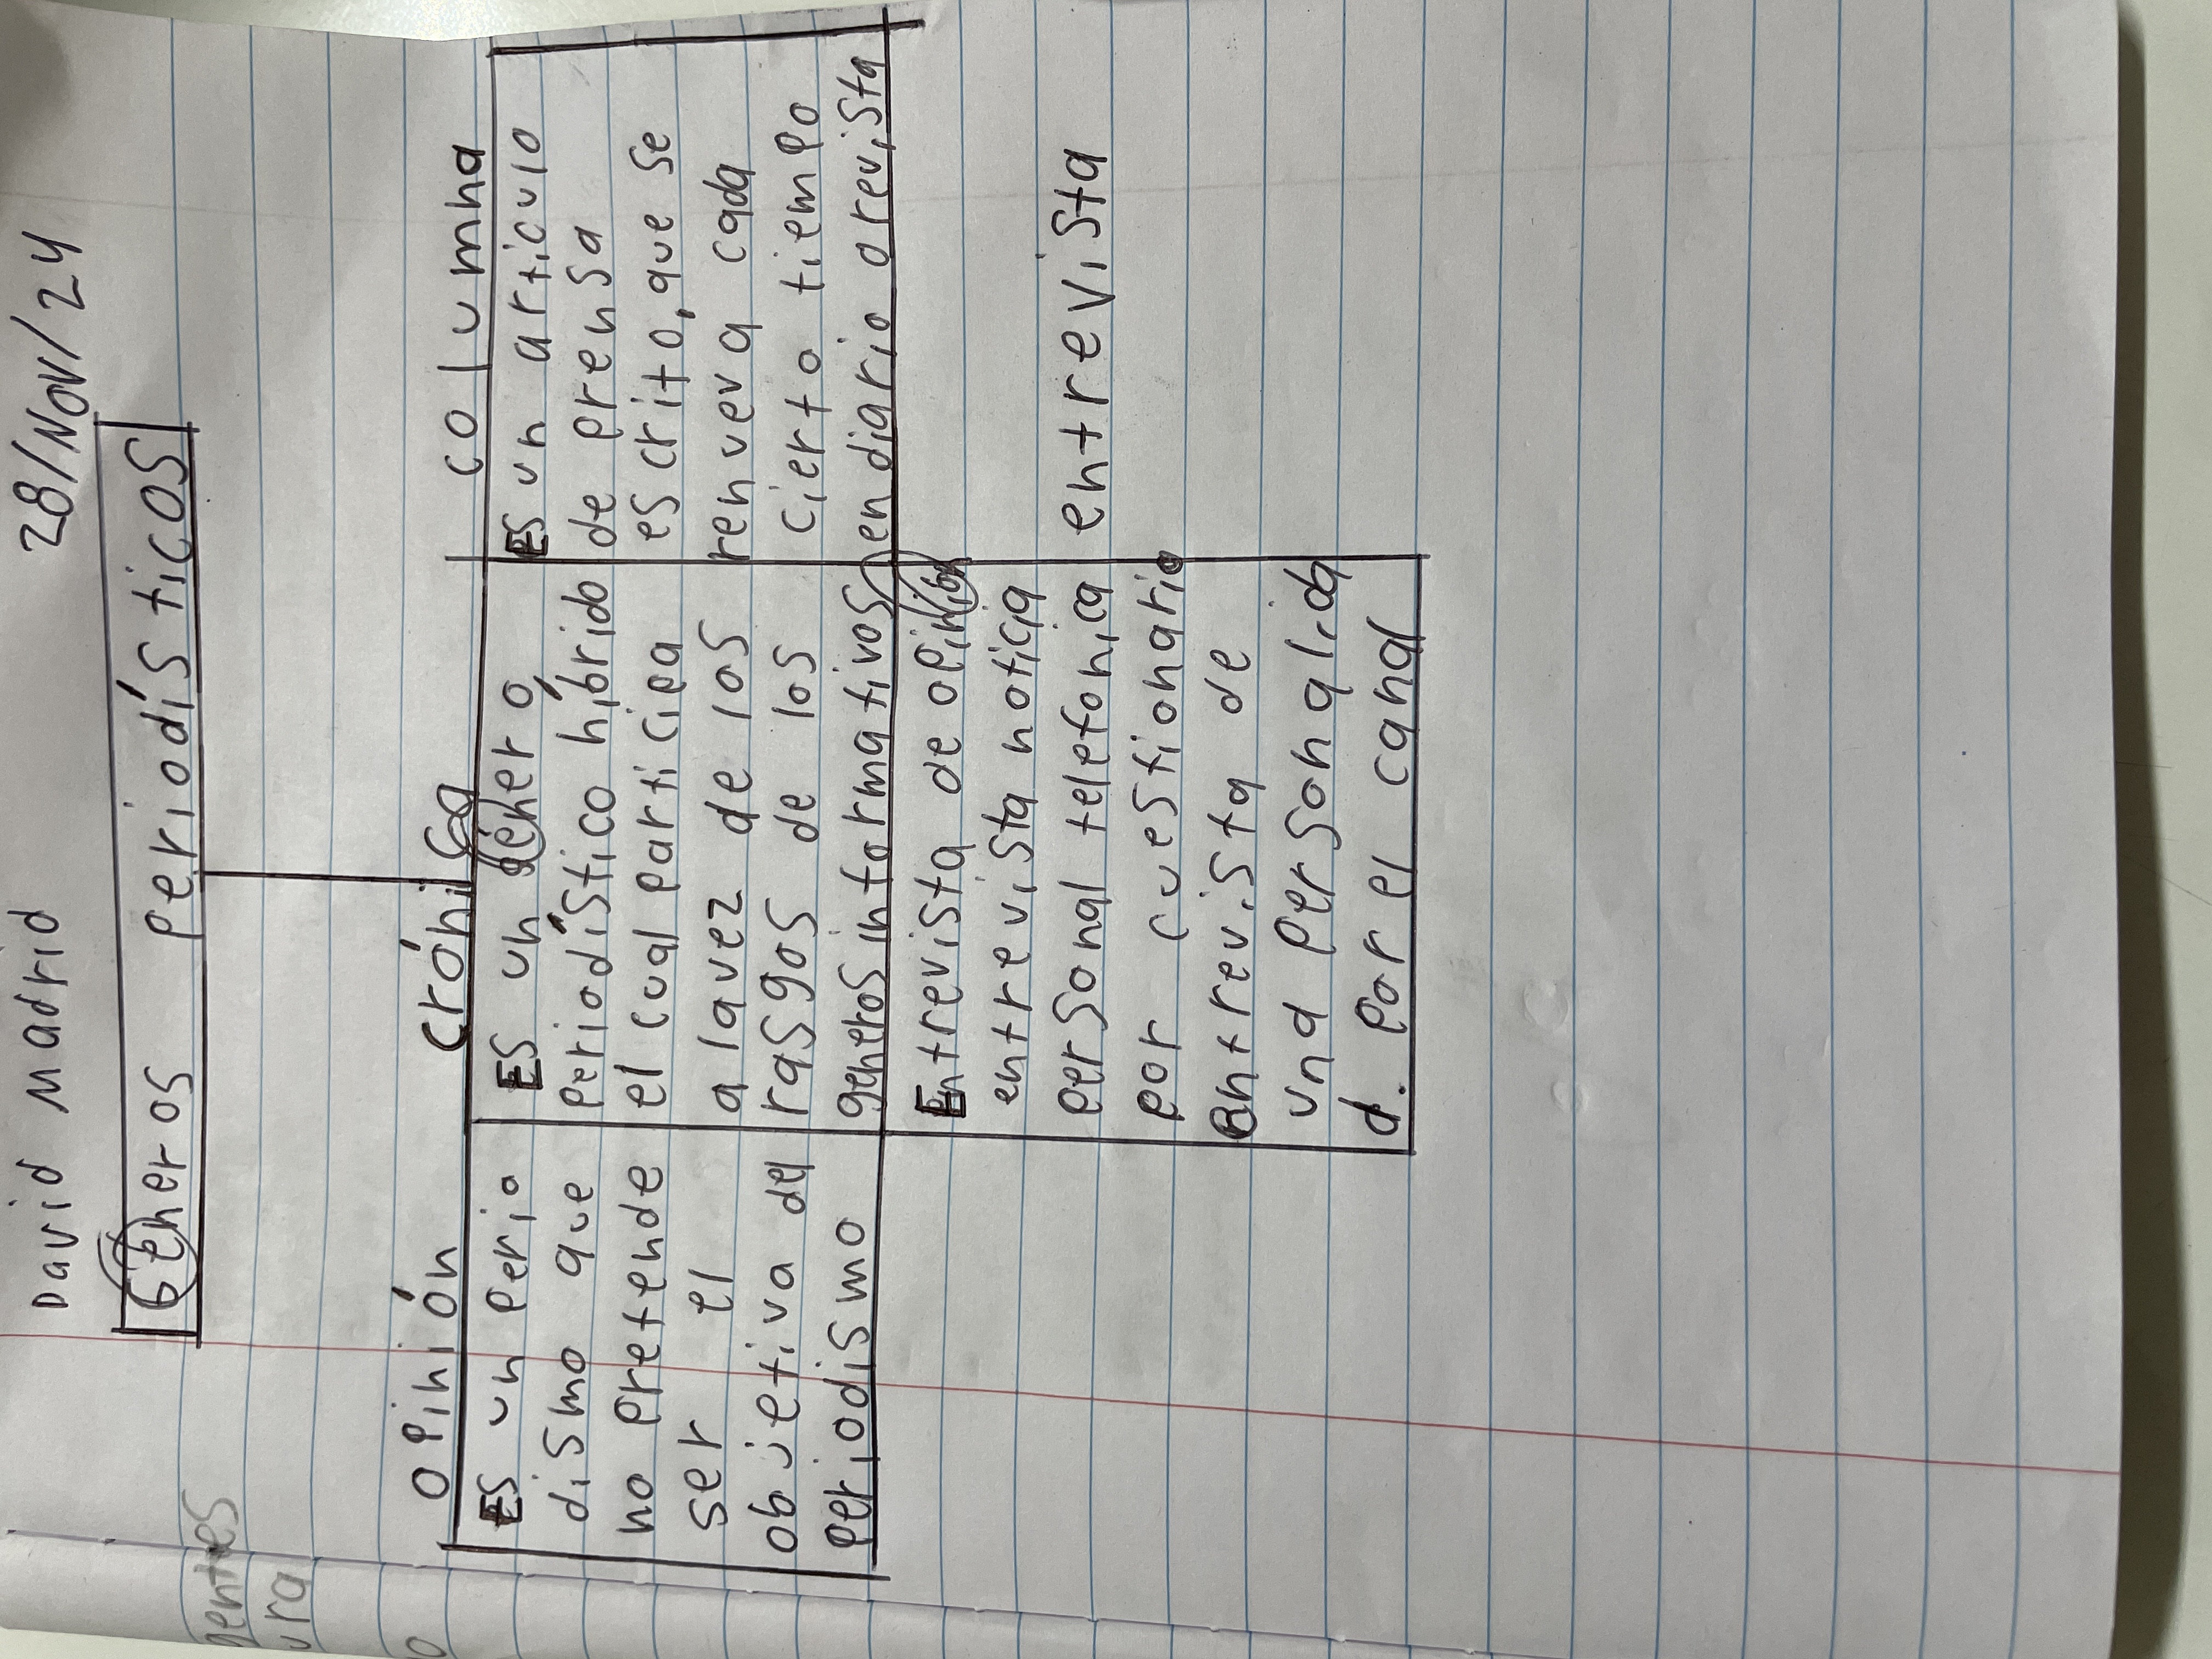 David Madrid 28/Nov/24
Géneros periodísticos
Opinión
Es un perio
dismo que
no pretende
ser el
objetiva del
periodismo
Crónica
Es un género
periodístico híbrido
el cual participa
a la vez de los
rasgos de los
generos informativos
columna
Es un articulo
de prensa
escrito, que se
renueva cada
cierto tiempo
en diario o revista
Entrevista de opinión
entrevista noticia
personal telefonica
por cuestionario
entrevista de
una personalida
d. por el canal
entrevista
gentes
ura
o